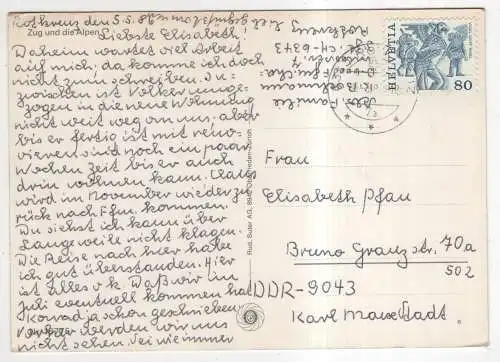 Rotkreuz den 5.5.86
Zug und die Alpen
Liebste Elisabeth!
Daheim wartet viel Arbeit
auf mich, da komme ich doch
nicht zum schreiben. In-
zwischen ist Volker umge-
zogen in die neue Wohnung
nicht weit weg von uns, aber
bis er fertig ist mit reno-
vieren sind noch ein paar
Wochen Zeit bis er auch
drin wohnen kann. Claus
wird im November wieder zu
rück nach Ffm. kommen.
Du siehst ich kann über
Langeweile nicht klagen.
Die Reise nach hier habe
ich gut überstanden. Hier
ist alles o.k. Daß wir im
Juli eventuell kommen hat
Konrad ja schon geschrieben
Vorher werden wir uns
nicht sehen. Sei wie immer
Abs. Familie
CH-6343
Rotkreuz
HELVETIA
80
Frau
Elisabeth Pfau
Bruno Granz str. 70a
502
DDR-9043
Karl Marx Stadt